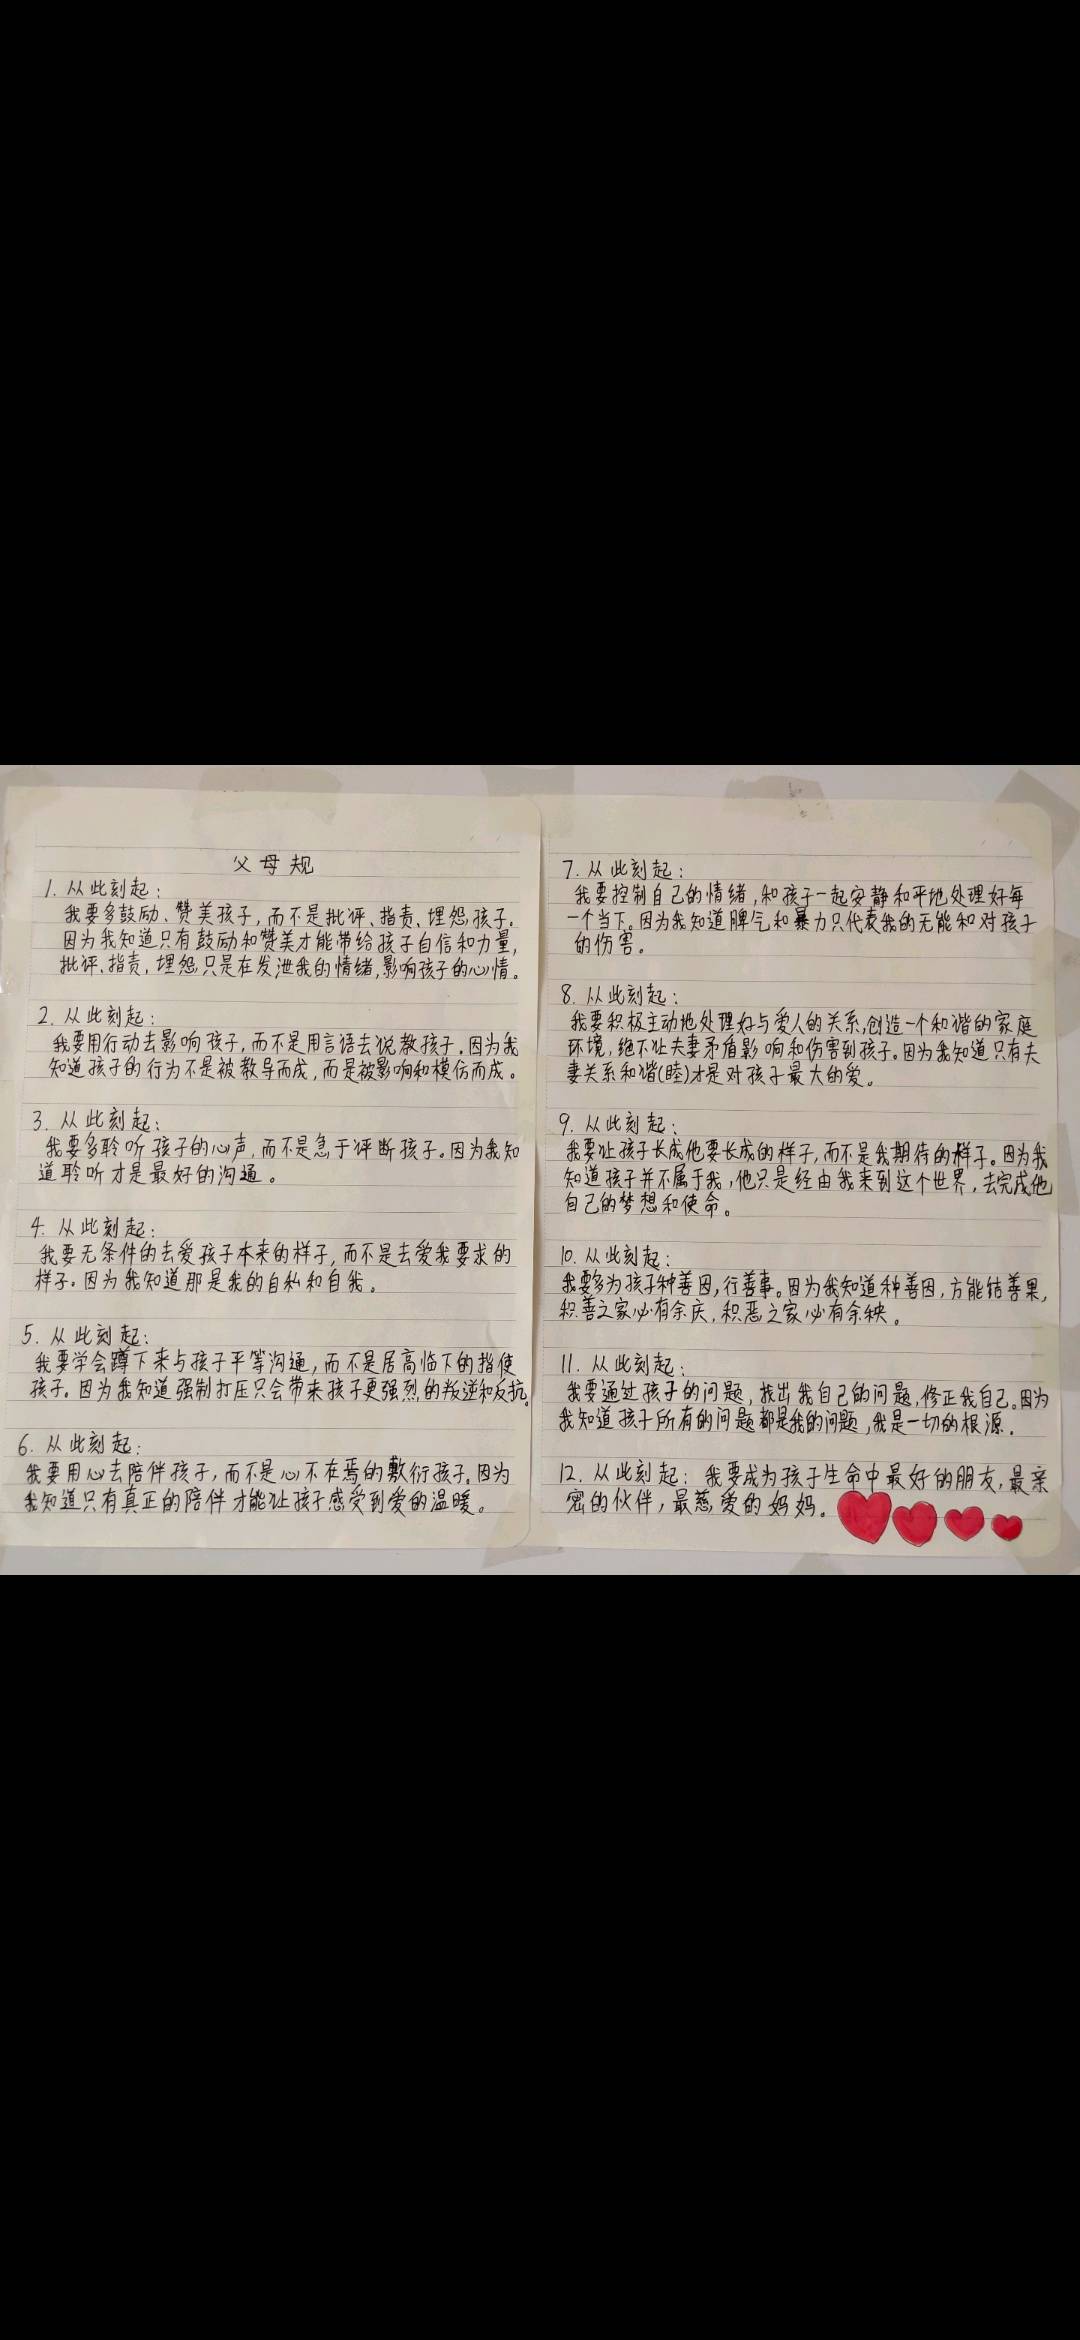 父母规
1. 从此刻起：
我要多鼓励、赞美孩子，而不是批评、指责、埋怨孩子。
因为我知道只有鼓励和赞美才能带给孩子自信和力量，
批评、指责，埋怨只是在发泄我的情绪，影响孩子的心情。
2. 从此刻起：
我要用行动去影响孩子，而不是用言语去说教孩子。因为我
知道孩子的行为不是被教导而成，而是被影响和模仿而成。
3. 从此刻起：
我要多聆听孩子的心声，而不是急于评断孩子。因为我知
道聆听才是最好的沟通。
4. 从此刻起：
我要无条件的去爱孩子本来的样子，而不是去爱我要求的
样子。因为我知道那是我的自私和自我。
5. 从此刻起：
我要学会蹲下来与孩子平等沟通，而不是居高临下的指使
孩子。因为我知道强制打压只会带来孩子更强烈的叛逆和反抗。
6. 从此刻起：
我要用心去陪伴孩子，而不是心不在焉的敷衍孩子。因为
我知道只有真正的陪伴才能让孩子感受到爱的温暖。
7. 从此刻起：
我要控制自己的情绪，和孩子一起安静和平地处理好每
一个当下。因为我知道脾气和暴力只代表我的无能和对孩子
的伤害。
8. 从此刻起：
我要积极主动地处理好与爱人的关系，创造一个和谐的家庭
环境，绝不让夫妻矛盾影响和伤害到孩子。因为我知道只有夫
妻关系和谐(睦)才是对孩子最大的爱。
9. 从此刻起：
我要让孩子长成他要长成的样子，而不是我期待的样子。因为我
知道孩子并不属于我，他只是经由我来到这个世界，去完成他
自己的梦想和使命。
10. 从此刻起：
我要多为孩子种善因，行善事。因为我知道种善因，方能结善果，
积善之家必有余庆，积恶之家必有余秧。
11. 从此刻起：
我要通过孩子的问题，找出我自己的问题，修正我自己。因为
我知道孩子所有的问题都是我的问题，我是一切的根源。
12. 从此刻起：我要成为孩子生命中最好的朋友，最亲
密的伙伴，最慈爱的妈妈。